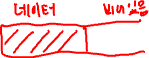 데이터 비어있음